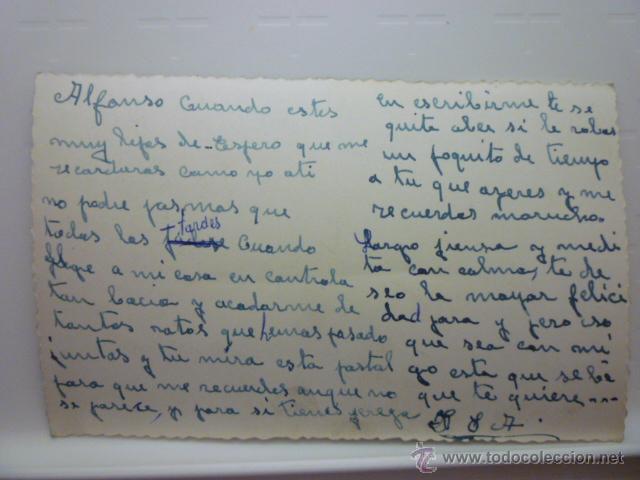 Alfonso Cuando estes
muy lijos de.. Espero que me
recarduras como yo ati
no podre pasmas que
todas las tardes Cuando
llege a mi casa en cantrola
tan bacia y acadarme de
tantos ratos que hemas pasado
juntas y tu mira esta pastal
para que me recuerdes aunque no
se parece, y para si tienes pereza
En escribirme te se
quita aber si le robas
un poquito de tiempo
a tu que azeres y me
recuerdas marucho.
Largo piensa y medi
ta con calma, te de
seo la mayar felici
dad para y pero iso
que sea con mi
go esta que se be
que te quiere....
www.todocoleccion.net